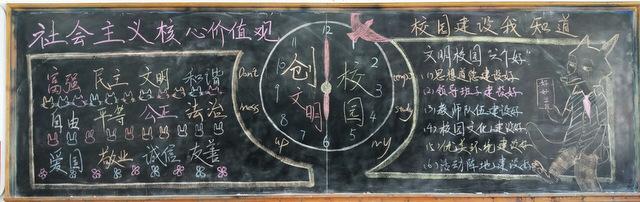 社会主义核心价值观
富强 民主 文明 和谐
自由 平等 公正 法治
爱国 敬业 诚信 友善
Don't
mess
up
12
11
10
9
8
7
6
5
4
3
2
创
文明
校
园
study
my
校园建设我知道
文明校园"六个好"
(1)思想道德建设好
(2)领导班子建设好
(3)教师队伍建设好
(4)校园文化建设好
(5)优美环境建设好
(6)活动阵地建设好